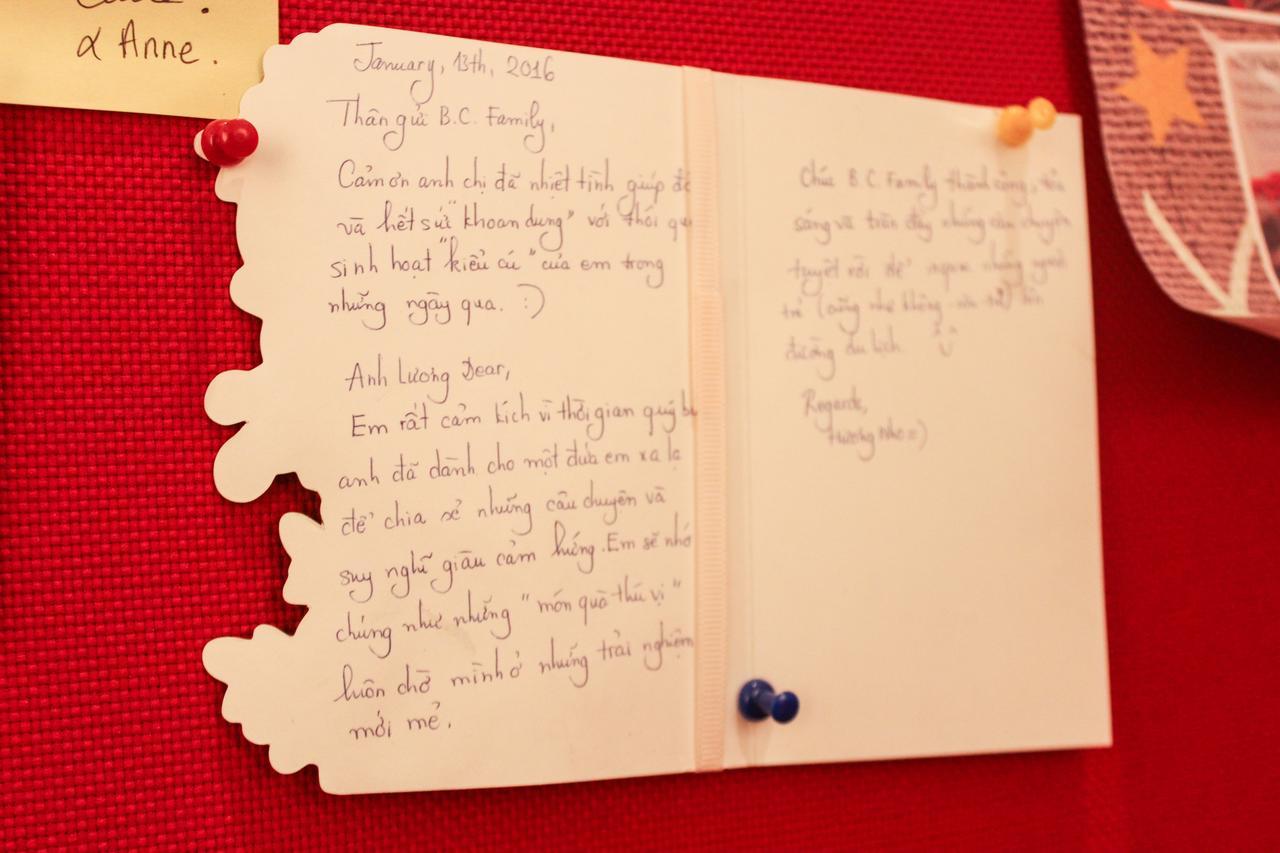 & Anne.
January, 13th, 2016
Thân gửi B.C. Family,
Cảm ơn anh chị đã nhiệt tình giúp đỡ
và hết sức "khoan dung" với thói qu
sinh hoạt "kiểu cú" của em trong
những ngày qua. :)
Anh Lương Dear,
Em rất cảm kích vì thời gian quý b
anh đã dành cho một đứa em xa lạ
để chia sẻ những câu chuyện và
suy nghĩ giàu cảm hứng. Em sẽ nhớ
chúng như những "món quà thú vị"
luôn chờ mình ở những trải nghiệm
mới mẻ.
Chúc B.C. Family thành công, tỏa
sáng và tràn đầy những câu chuyện
tuyệt vời để những người
trẻ (cũng như không còn trẻ) lên
đường du lịch.
Regards,